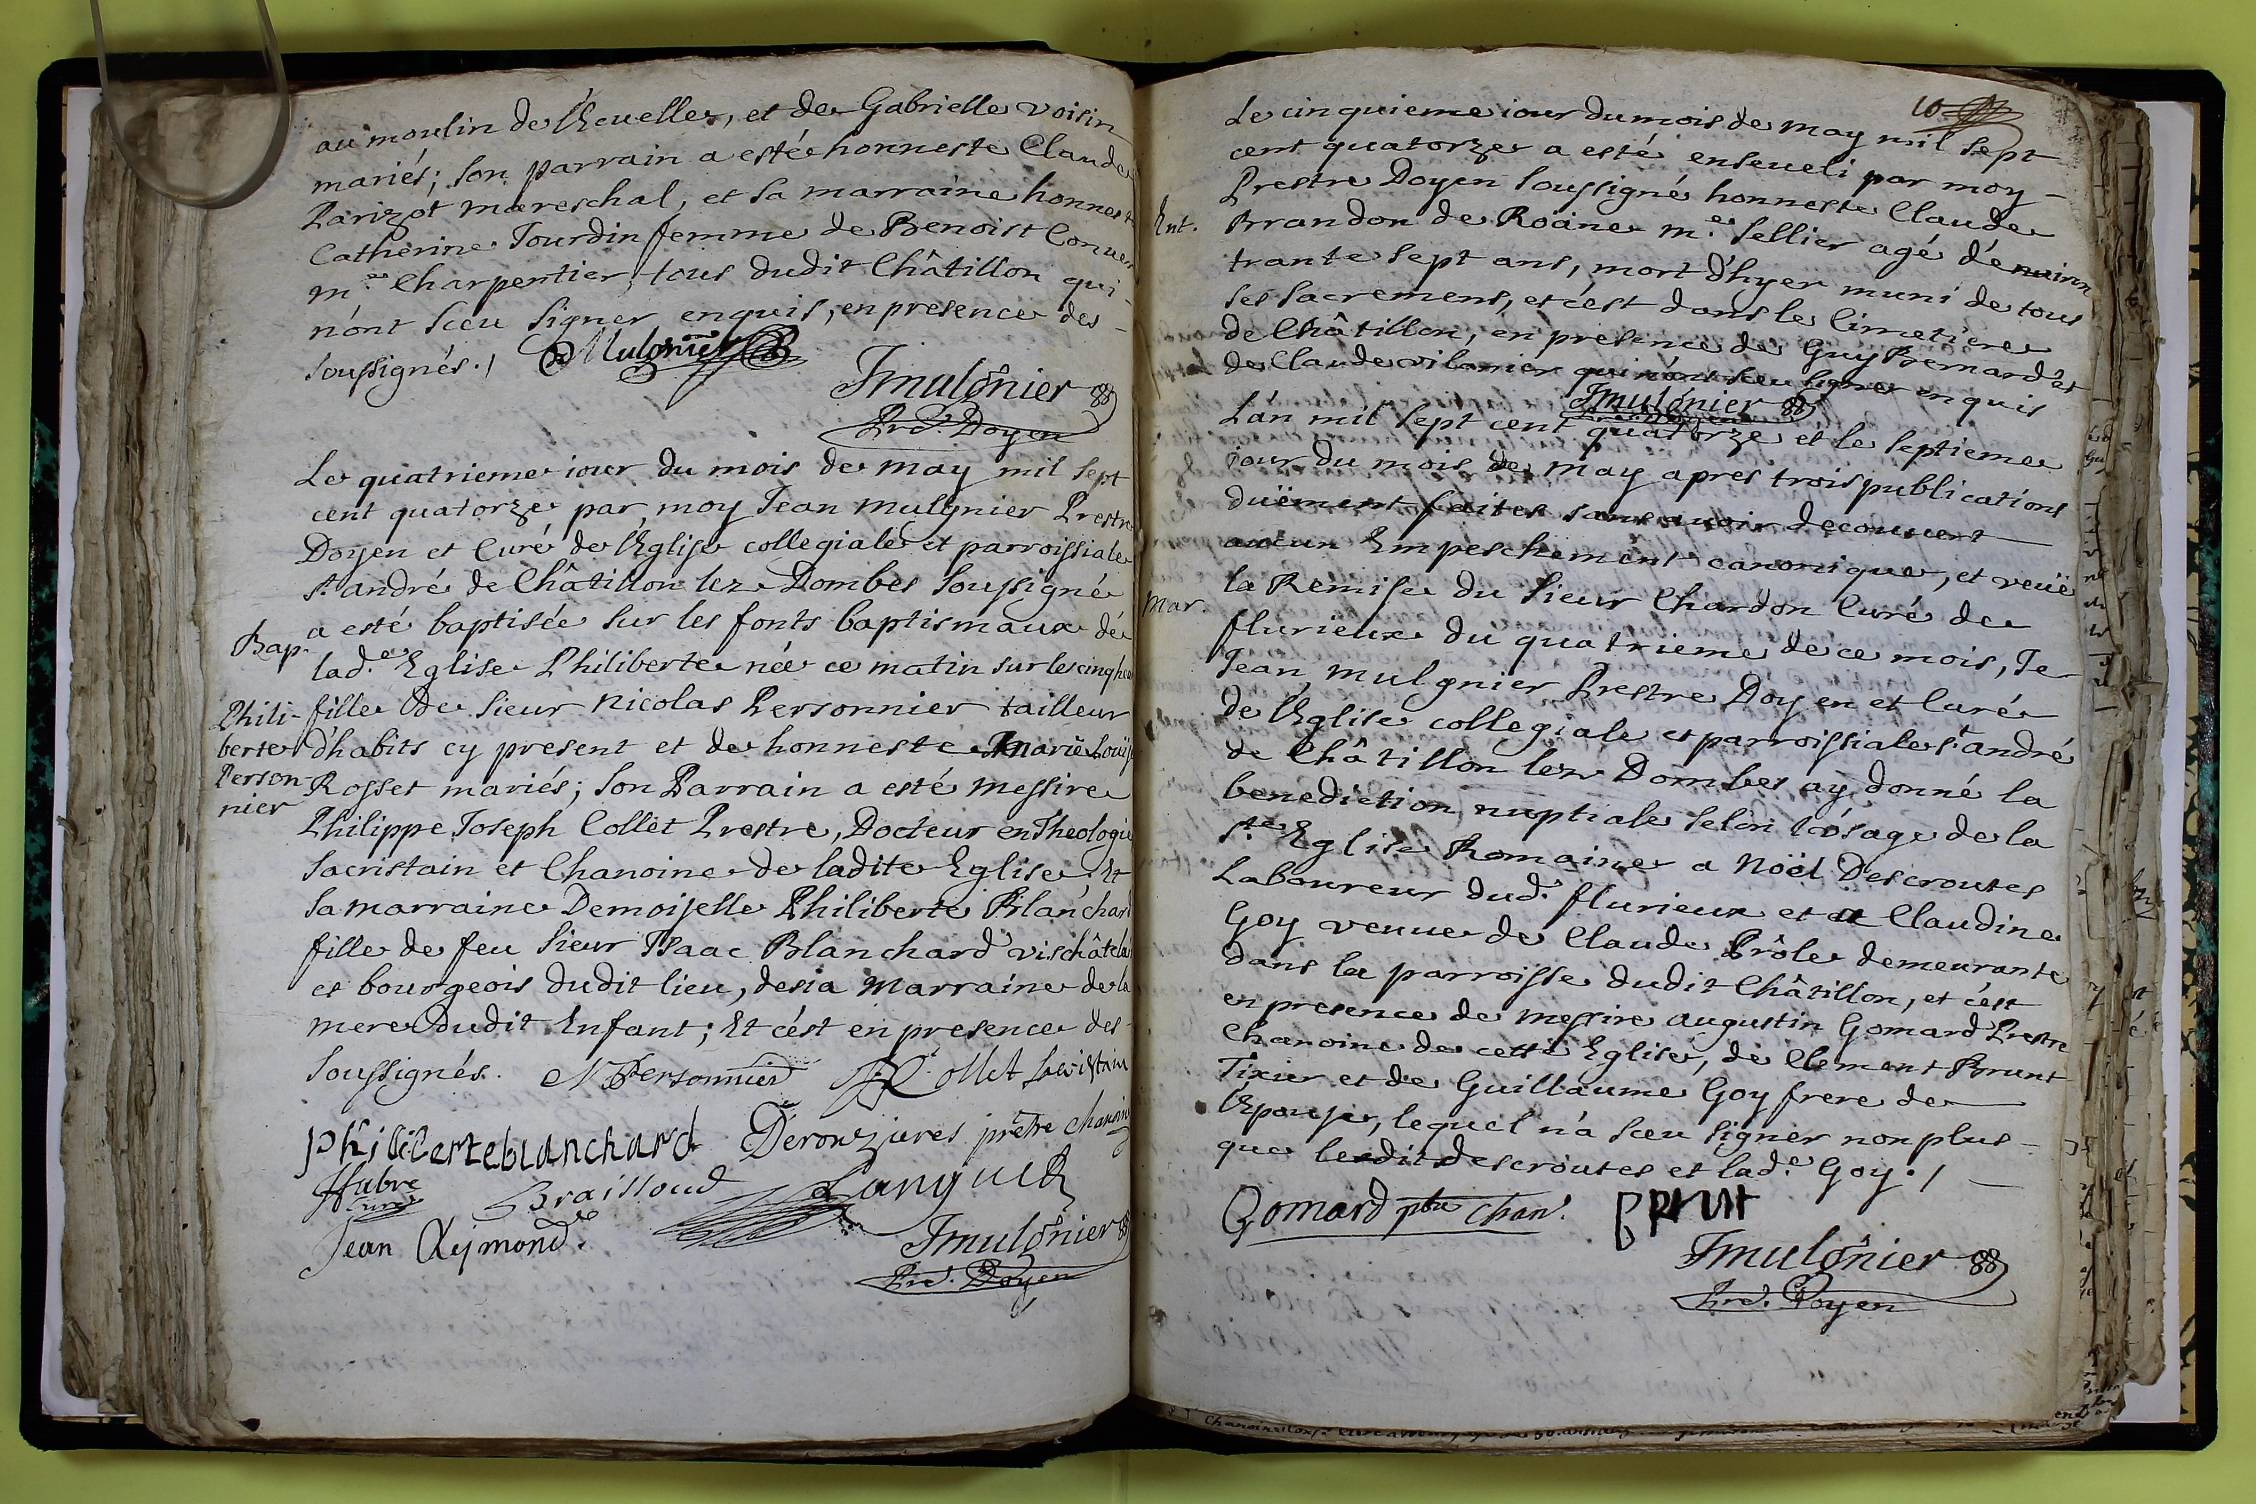 au moulin de l'Ecuelle, et de Gabrielle Voisin
mariés; son parrain a esté honneste Claude
Parizot mareschal, et sa marraine honneste
Catherine Tourdin femme de Benoist
m.e Charpentier, tous dudit Châtillon qui
n'ont sceu signer enquis, en presence des
soussignés./ Mulgnier
Jmulgnier
Pre. Doyen
Le quatrieme iour du mois de may mil sept
cent quatorze par moy Jean mulgnier Prestre
Doyen et Curé de l'Eglise collegiale et parroissiale
st. andré de Châtillon lez Dombes soussigné
Bap.
a esté baptisée sur les fonts baptismaux de
lad.e Eglise Philiberte née ce matin sur les cinq heu
Phili-
berte
Person-
nier
fille de sieur Nicolas Personnier tailleur
d'habits cy present et de honneste marie Louïse
Rosset mariés; son Parrain a esté messire
Philippe Joseph Collet Prestre, Docteur en Theologie
sacristain et Chanoine de ladite Eglise Et
sa marraine Demoiselle Philiberte Blanchard
fille de feu sieur Isaac Blanchard vischâtelain
et bourgeois dudit lieu, desia marraine de la
mere dudit Enfant; Et c'est en presence des
soussignés. N Personnier Collet sacristain
philiberteblanchard Derouzieres prêtre chanoine
Braissoud Languet
Jean Reymond.
Jmulgnier
Pre. Doyen
10
Le cinquieme iour du mois de may mil sept
cent quatorze a esté enseveli par moy
Prestre Doyen soussigné honneste Claude
Ent.
Brandon de Roäne m.e sellier agé d'environ
trante sept ans, mort d'hyer muni de tous
ses sacremens, et c'est dans le Cimetiere
de Châtillon, en presence de Guy Bernard et
de Claude vilanier qui n'ont sceu signer enquis
Jmulgnier
Pre. Doyen
L'an mil sept cent quatorze et le septieme
iour du mois de may apres trois publications
duëment faites sans avoir decouvert
aucun Empeschement canonique, et veuë
Mar.
la Remise du sieur Chardon Curé de
flurieux du quatrieme de ce mois, Je
Jean mulgnier Prestre Doyen et Curé
de l'Eglise collegiale et parroissiale st. andré
de Châtillon lez Dombes ay donné la
benediction nuptiale selon l'vsage de la
s.te Eglise Romaine a Noël Descroutes
Laboureur dud. flurieux et a Claudine
Goy veuve de Claude Prôle demeurante
dans la parroisse dudit Châtillon, et c'est
en presence de messire augustin Gomard Prestre
Chanoine de cette Eglise, de Clement Brunt
Tixier et de Guillaume Goy frere de
l'Epouse, lequel n'a sceu signer non plus
que lesdits descroutes et lad.e Goy./
Gomard ptre Chan.
Jmulgnier
Pre. Doyen